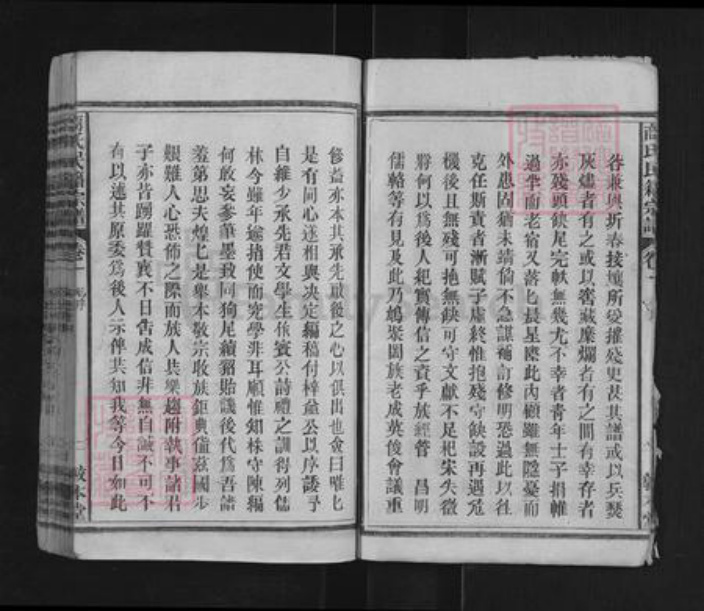 眷兼與圻春接壤所受摧殘更甚其譜或以兵燹
灰燼者有之或以密藏糜爛者有之間有幸存者
亦殘頭缺尾完帙無幾尤不幸者青年士子捐帷
過半而老宿又落匕晨星應此內顧雖無隱憂而
外患固猶未靖倘不急謀補訂修明恐過此以往
克任斯責者漸賦子虛終惟抱殘守缺設再遇危
機後且無殘可抱無缺可守文獻不足杞宋失徵
將何以爲後人紀實傳信之資乎族經管 昌明
儒輅等有見及此乃鳩聚闔族老成英俊會議重
修益亦本其承先啟後之心以俱出也僉曰唯匕
是有同心遂相與決定編稿付梓並公以序諉予
自維少承先君文學生 賓公詩禮之訓得列儒
林今雖年逾指使而究學非耳順惟知株守陳編
何敢妄參筆墨致同狗尾續貂貽議後代爲吾諸
羞第思夫煌匕是舉本敬宗收族鉅典值茲國步
艱難人心恐怖之際而族人共樂趨附執事諸君
子亦皆踴躍贊襄不日告成信非無自誠不可不
有以述其原委爲後人示俾共知我等今日如此
氏宗譜
卷一
敦本堂